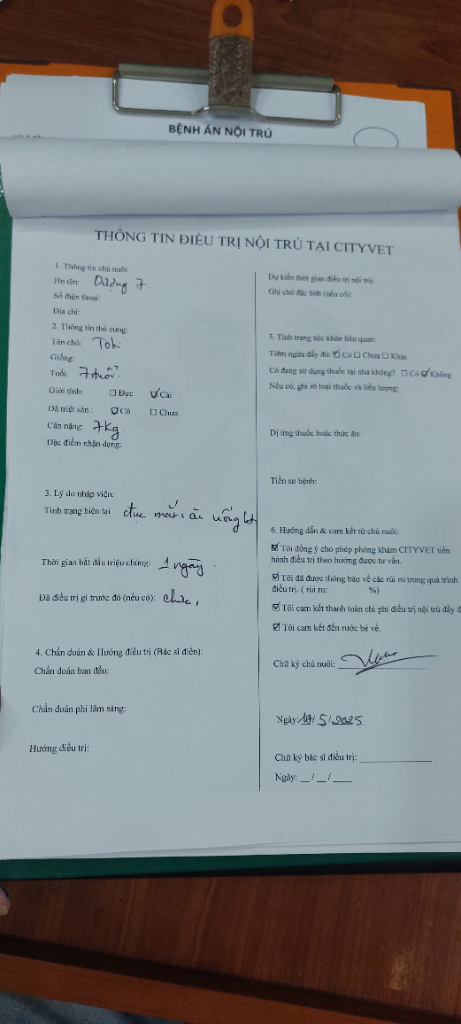 BỆNH ÁN NỘI TRÚ
THÔNG TIN ĐIỀU TRỊ NỘI TRÚ TẠI CITYVET
1. Thông tin chủ nuôi:
Họ tên: Dượng 7
Số điện thoại:
Địa chỉ:
2. Thông tin thú cưng:
Tên chó: Tobi
Giống:
Tuổi: 7 tuổi?
Giới tính: ☐ Đực ☑ Cái
Đã triệt sản: ☑ Có ☐ Chưa
Cân nặng: 7kg
Đặc điểm nhận dạng:
3. Lý do nhập viện:
Tình trạng hiện tại đục mắt, ăn uống bt
Thời gian bắt đầu triệu chứng: 1 ngày.
Đã điều trị gì trước đó (nếu có): chưa,
4. Chẩn đoán & Hướng điều trị (Bác sĩ điền):
Chẩn đoán ban đầu:
Chẩn đoán phi lâm sàng:
Hướng điều trị:
Dự kiến thời gian điều trị nội trú:
Ghi chú đặc biệt (nếu có):
5. Tình trạng sức khỏe liên quan:
Tiêm ngừa đầy đủ: ☑ Có ☐ Chưa ☐ Khác
Có đang sử dụng thuốc tại nhà không? ☐ Có ☑ Không
Nếu có, ghi rõ loại thuốc và liều lượng:
Dị ứng thuốc hoặc thức ăn:
Tiền sử bệnh:
6. Hướng dẫn & cam kết từ chủ nuôi:
☑ Tôi đồng ý cho phép phòng khám CITYVET tiến
hành điều trị theo hướng được tư vấn.
☑ Tôi đã được thông báo về các rủi ro trong quá trình
điều trị. ( rủi ro: %)
☑ Tôi cam kết thanh toán chi phí điều trị nội trú đầy đ
☑ Tôi cam kết đến rước bé về.
Chữ ký chủ nuôi:
Ngày: /5/2025
Chữ ký bác sĩ điều trị: ____________
Ngày: __/__/____